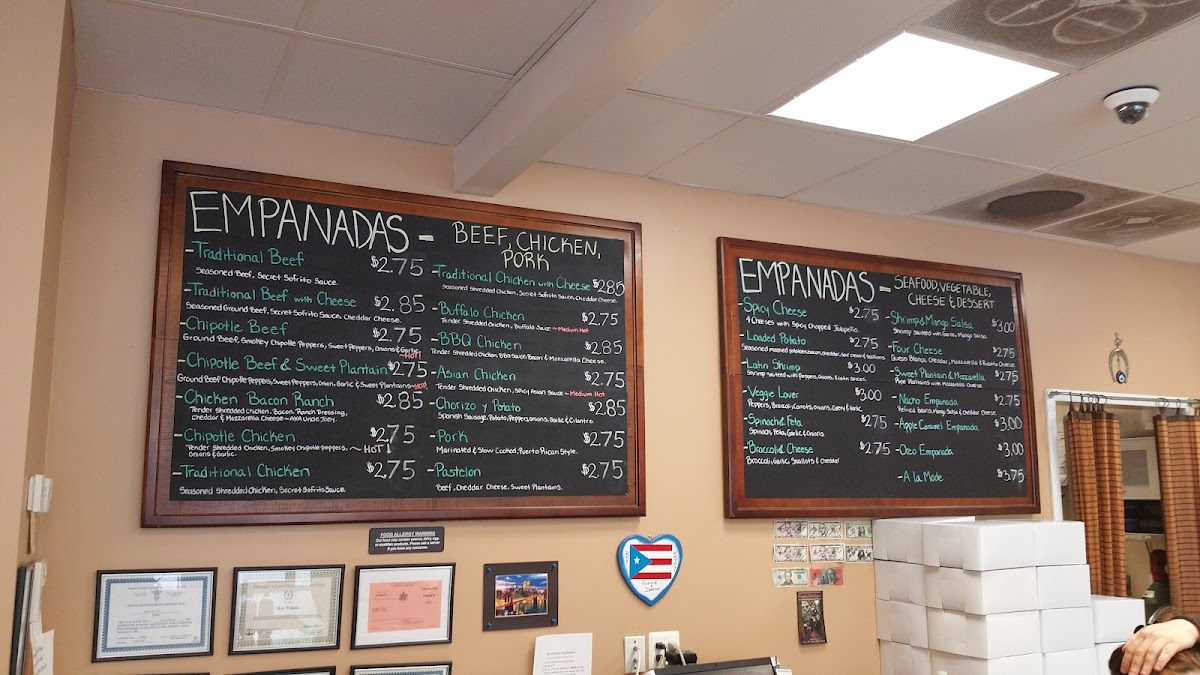 EMPANADAS - BEEF, CHICKEN,
PORK
-Traditional Beef $2.75
Seasoned Beef, Secret Sofrito Sauce.
-Traditional Beef with Cheese $2.85
Seasoned Ground Beef, Secret Sofrito Sauce, Cheddar Cheese.
-Chipotle Beef $2.75
Ground Beef, Smokey Chipotle Peppers, Sweet Peppers, Onions & Garlic.
~HOT!
-Chipotle Beef & Sweet Plantain $2.75
Ground Beef Chipotle Peppers, Sweet Peppers, Onion, Garlic & Sweet Plantains ~HOT!
-Chicken Bacon Ranch $2.85
Tender Shredded Chicken, Bacon, Ranch Dressing,
Cheddar & Mozzarella Cheese ~ AKA Uncle Joey.
-Chipotle Chicken $2.75
Tender Shredded Chicken, Smokey Chipotle Peppers, ~HOT!
Onions & Garlic.
-Traditional Chicken $2.75
Seasoned Shredded Chicken, Secret Sofrito Sauce.
-Traditional Chicken with Cheese $2.85
Seasoned Shredded Chicken, Secret Sofrito Sauce, Cheddar Cheese.
-Buffalo Chicken $2.75
Tender Shredded Chicken, Buffalo Sauce ~ Medium Hot
-BBQ Chicken $2.85
Tender Shredded Chicken, BBQ Sauce, Bacon & Mozzarella Cheese.
-Asian Chicken $2.75
Tender Shredded Chicken, Spicy Asian Sauce ~ Medium Hot
-Chorizo y Potato $2.85
Spanish Sausage, Potato, Peppers, Onions, Garlic & Cilantro.
-Pork $2.75
Marinated & Slow Cooked, Puerto Rican Style.
-Pastelon $2.75
Beef, Cheddar Cheese, Sweet Plantains.
EMPANADAS - SEAFOOD, VEGETABLE,
CHEESE & DESSERT
-Spicy Cheese $2.75
4 Cheeses with Spicy Chopped Jalapeño.
-Loaded Potato $2.75
Seasoned mashed potatoes, bacon, cheddar, sour cream & scallions.
-Latin Shrimp $3.00
Shrimp sauteed with Peppers, Onions, & Latin Spices.
-Veggie Lover $3.00
Peppers, Broccoli, Carrots, Onions, Celery & Garlic.
-Spinach & Feta $2.75
Spinach, Feta, Garlic & Onions.
-Broccoli & Cheese $2.75
Broccoli, Garlic, Shallots & Cheddar
-Shrimp & Mango Salsa $3.00
Shrimp sauteed with Garlic, Mango Salsa.
-Four Cheese $2.75
Queso Blanco, Cheddar, Mozzarella & Ricotta Cheese.
-Sweet Plantain & Mozzarella $2.75
Ripe Plantains with Mozzarella Cheese.
-Nacho Empanada $2.75
Refried Beans, Mango Salsa & Cheddar Cheese.
-Apple Caramel Empanada $3.00
-Oreo Empanada $3.00
-A la Mode $3.75
FOOD ALLERGY WARNING